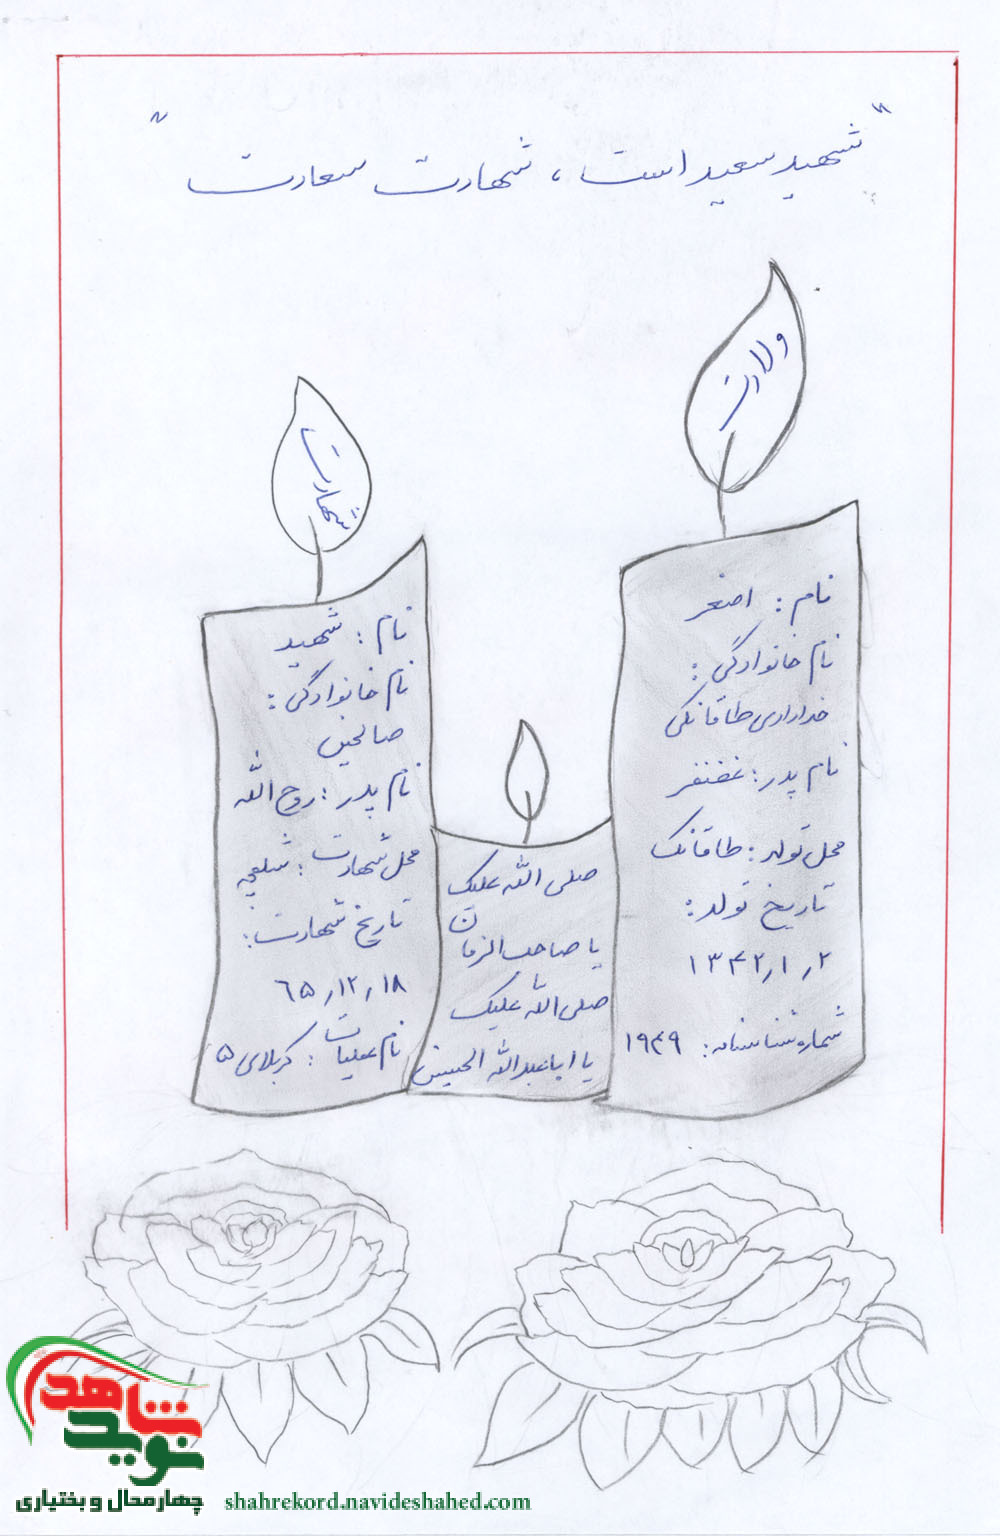 "شهید سعید است، شهادت سعادت"
ولادت
نام: اصغر
نام خانوادگی:
خدادادی طاقانکی
نام پدر: غضنفر
محل تولد: طاقانک
تاریخ تولد:
۱۳۴۲٫۱٫۲
شماره شناسنامه: ۱۹۴۹
شهادت
نام: شهید
نام خانوادگی:
صالحین
نام پدر: روح الله
محل شهادت: شلمچه
تاریخ شهادت:
۶۵٫۱۲٫۱۸
نام عملیات: کربلای ۵
صلی الله علیک
یا صاحب الزمان
صلی الله علیک
یا اباعبدالله الحسین
نوید شاهد
چهارمحال و بختیاری
shahrekord.navideshahed.com